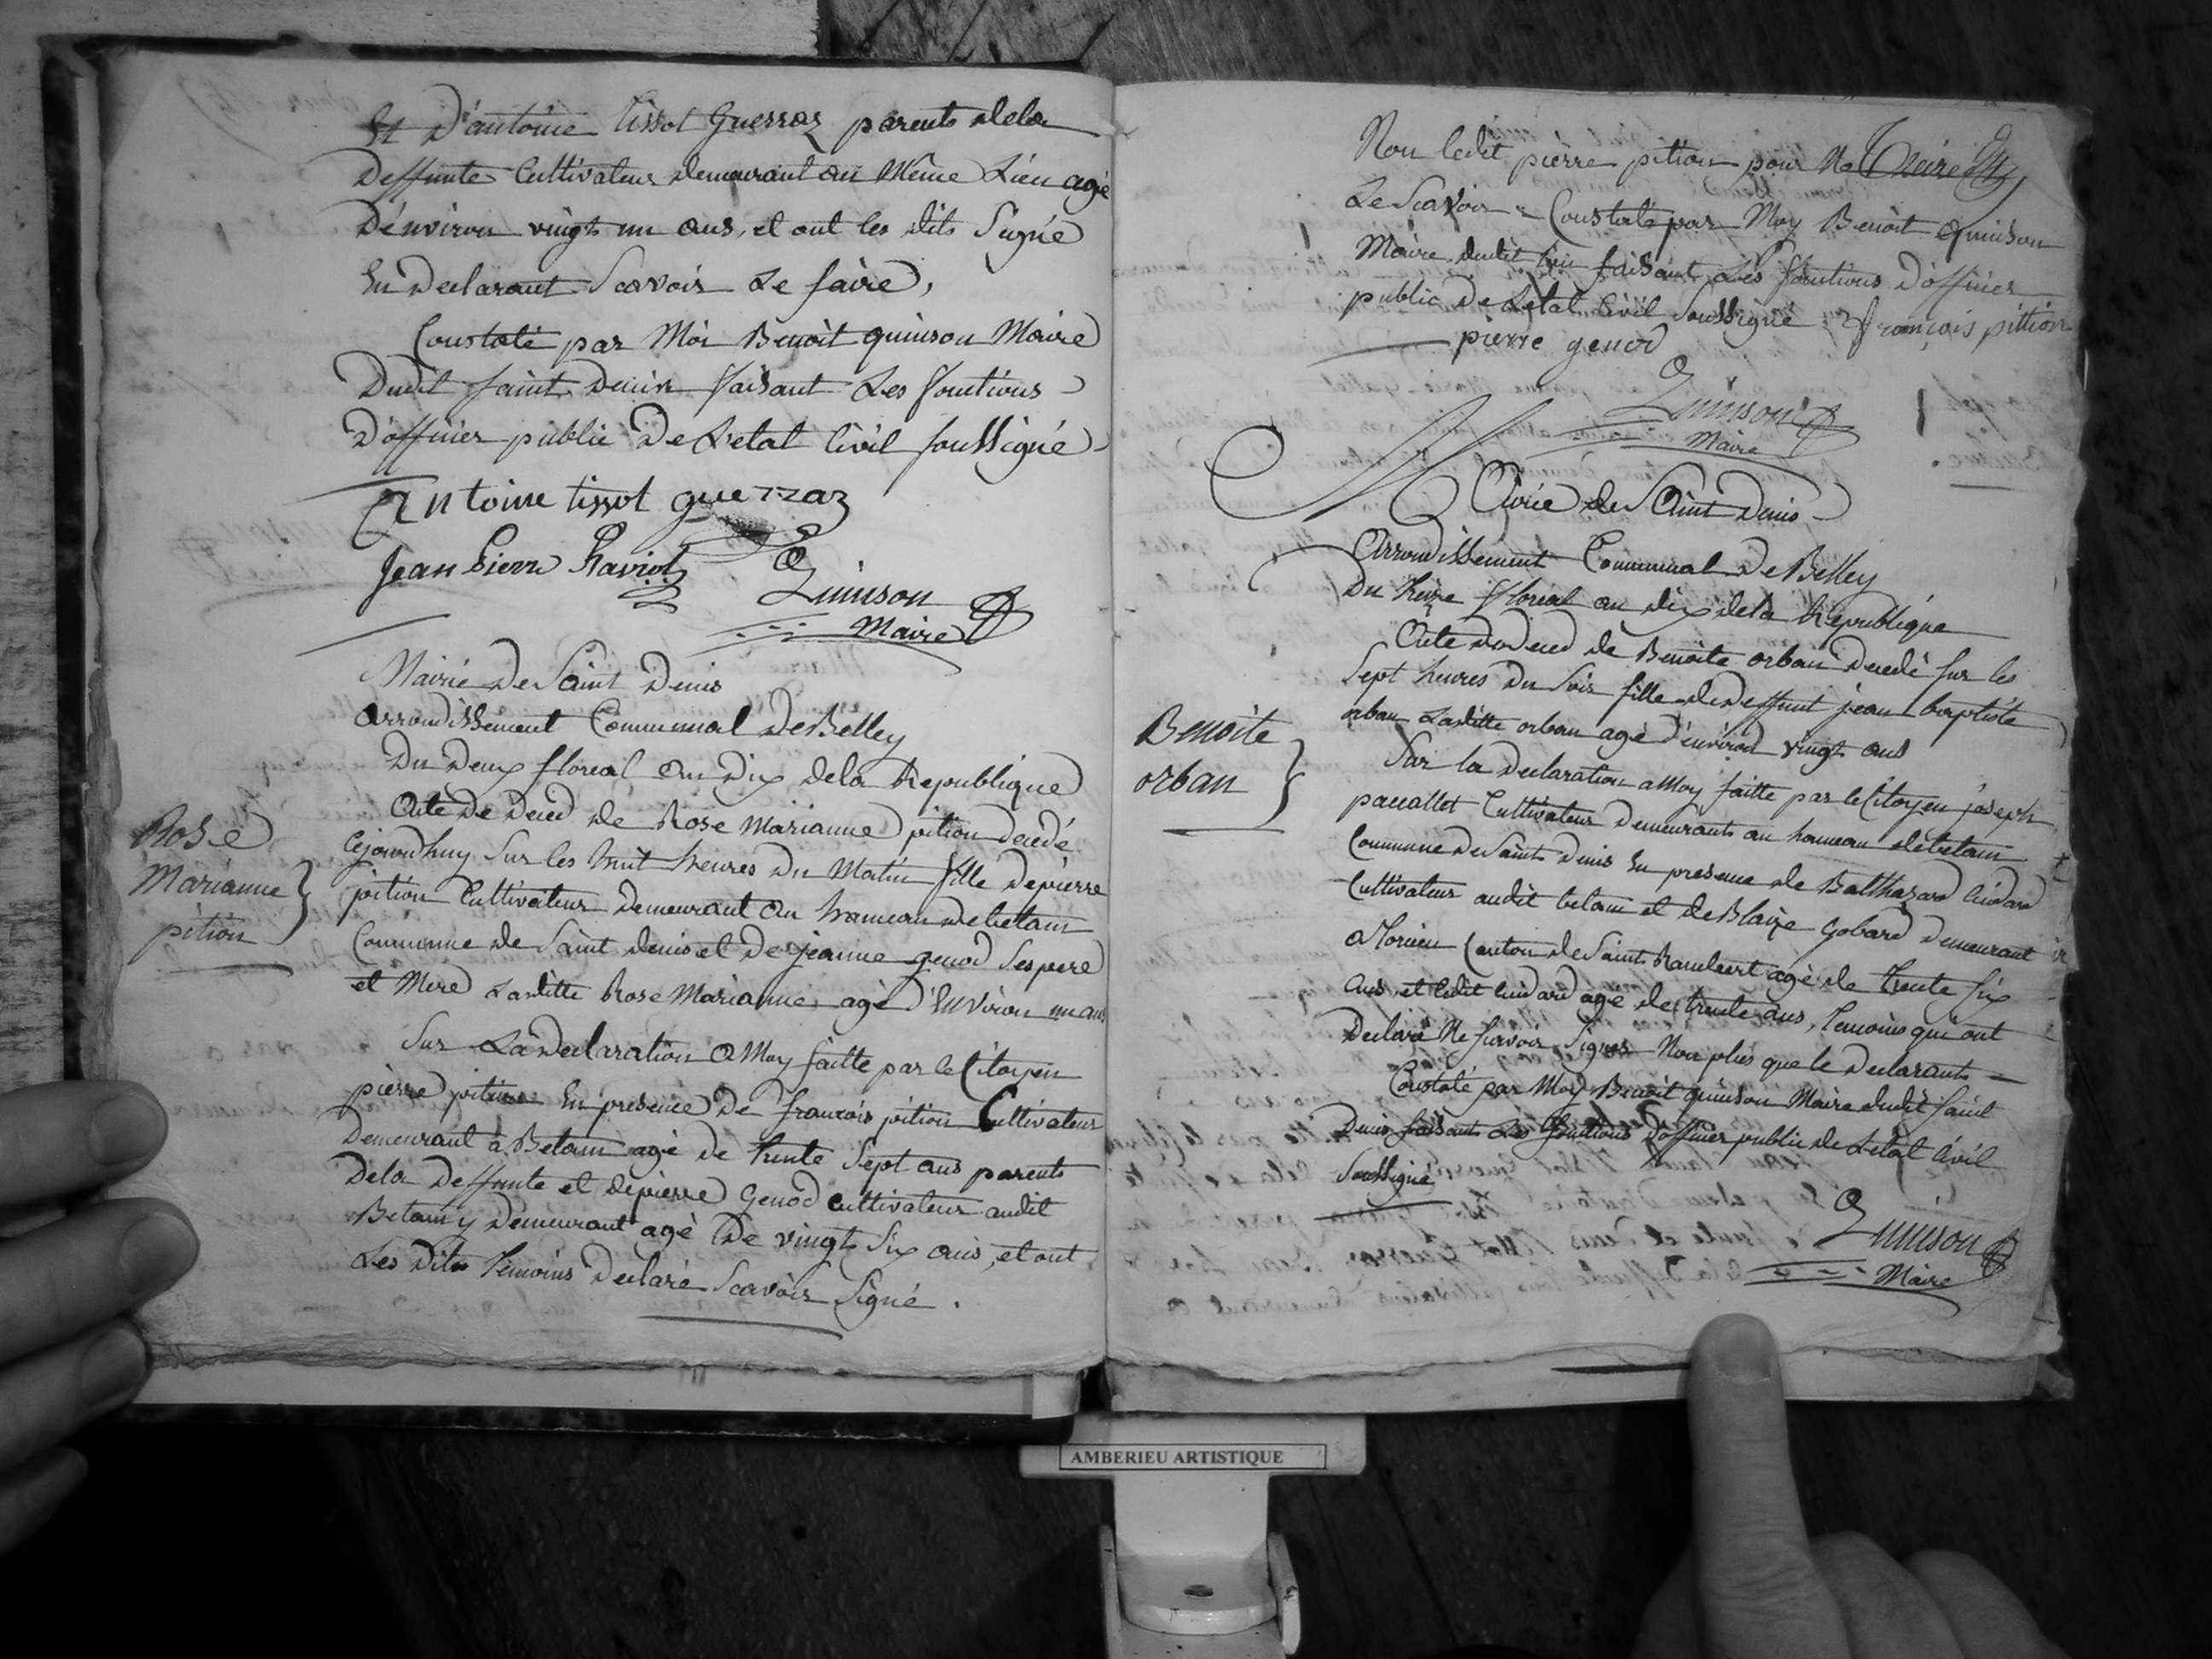 Et D'antoine tissot Guerraz parents dela
Deffunte Cultivateur demeurant au Même Lieu agé
D'environ vingt un ans, et ont les dits Signé
En Declarant Scavoir Le faire,
Constaté par Moi Benoit quinson Maire
Dudit Saint Denis faisant Les fonctions
D'officier public De Letat Civil soussigné
Antoine tissot guerraz
Jean Pierre Ravio
Quinson
Maire
Mairie De Saint Denis
arrondissement Communal De Belley
Du Deux floreal an Dix dela Republique
Acte De Deced de Rose Marianne pition decedé
Cejourdhuy Sur les huit heures Du Matin fille De pierre
pition Cultivateur Demeurant au hameau de betam
Commune de Saint denis et De jeanne genod Ses pere
et Mere Laditte Rose Marianne agé d'Environ un ans
Rose
Marianne
pition
Sur La Declaration a Moy faitte par le Citoyen
pierre pition En presence De francois pition Cultivateur
Demeurant a Betam agé de trente Sept ans parents
Dela Deffunte et De pierre Genod cultivateur audit
Betam y Demeurant agé De vingt Six ans, et ont
Les Dits temoins Declaré Scavoir Signé.
Non ledit pierre pition pour Ne
Le Scavoir Constaté par Moy Benoit quinson
Maire dudit lieu faisant Les fonctions D'officier
public De Letat Civil Soussigné françois pittion
pierre genod
Quinson
Maire
Mairie de Saint Denis
Arrondissement Communal De Belley
Du treize floreal an dix dela Republique
Acte de deced de Benoite orban decedé sur les
Sept heures Du Soir fille de deffunt jean baptiste
orban Laditte orban agé d'environ vingt ans
Benoite
orban
Sur la Declaration a Moy faitte par le Citoyen joseph
paccallet Cultivateur Demeurants au hameau de betam
Commune de Saint Denis En presence de Balthazard
Cultivateur audit betam et de Blaize Gobard Demeurant
a Torcieu Canton de Saint Rambert agé de trente Six
ans, et ledit agé de trente ans, temoins qui ont
Declaré Ne Scavoir Signer Non plus que le Declarants
Constaté par Moy Benoit quinson Maire dudit Saint
Denis faisant Les fonctions D'officier public de Letat Civil
Soussigné
Quinson
Maire
AMBERIEU ARTISTIQUE